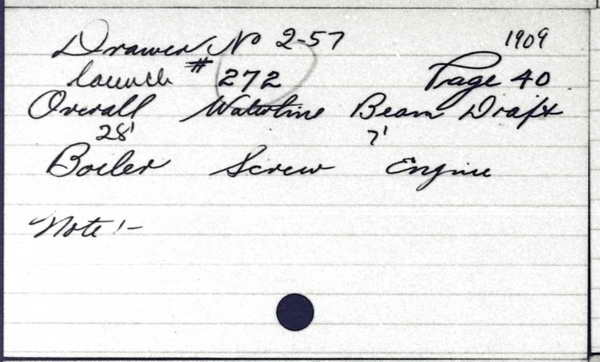 Drawer No 2-57 1909
Launch # 272 Page 40
Overall Waterline Beam Draft
28' 7'
Boiler Screw Engine
Note :-